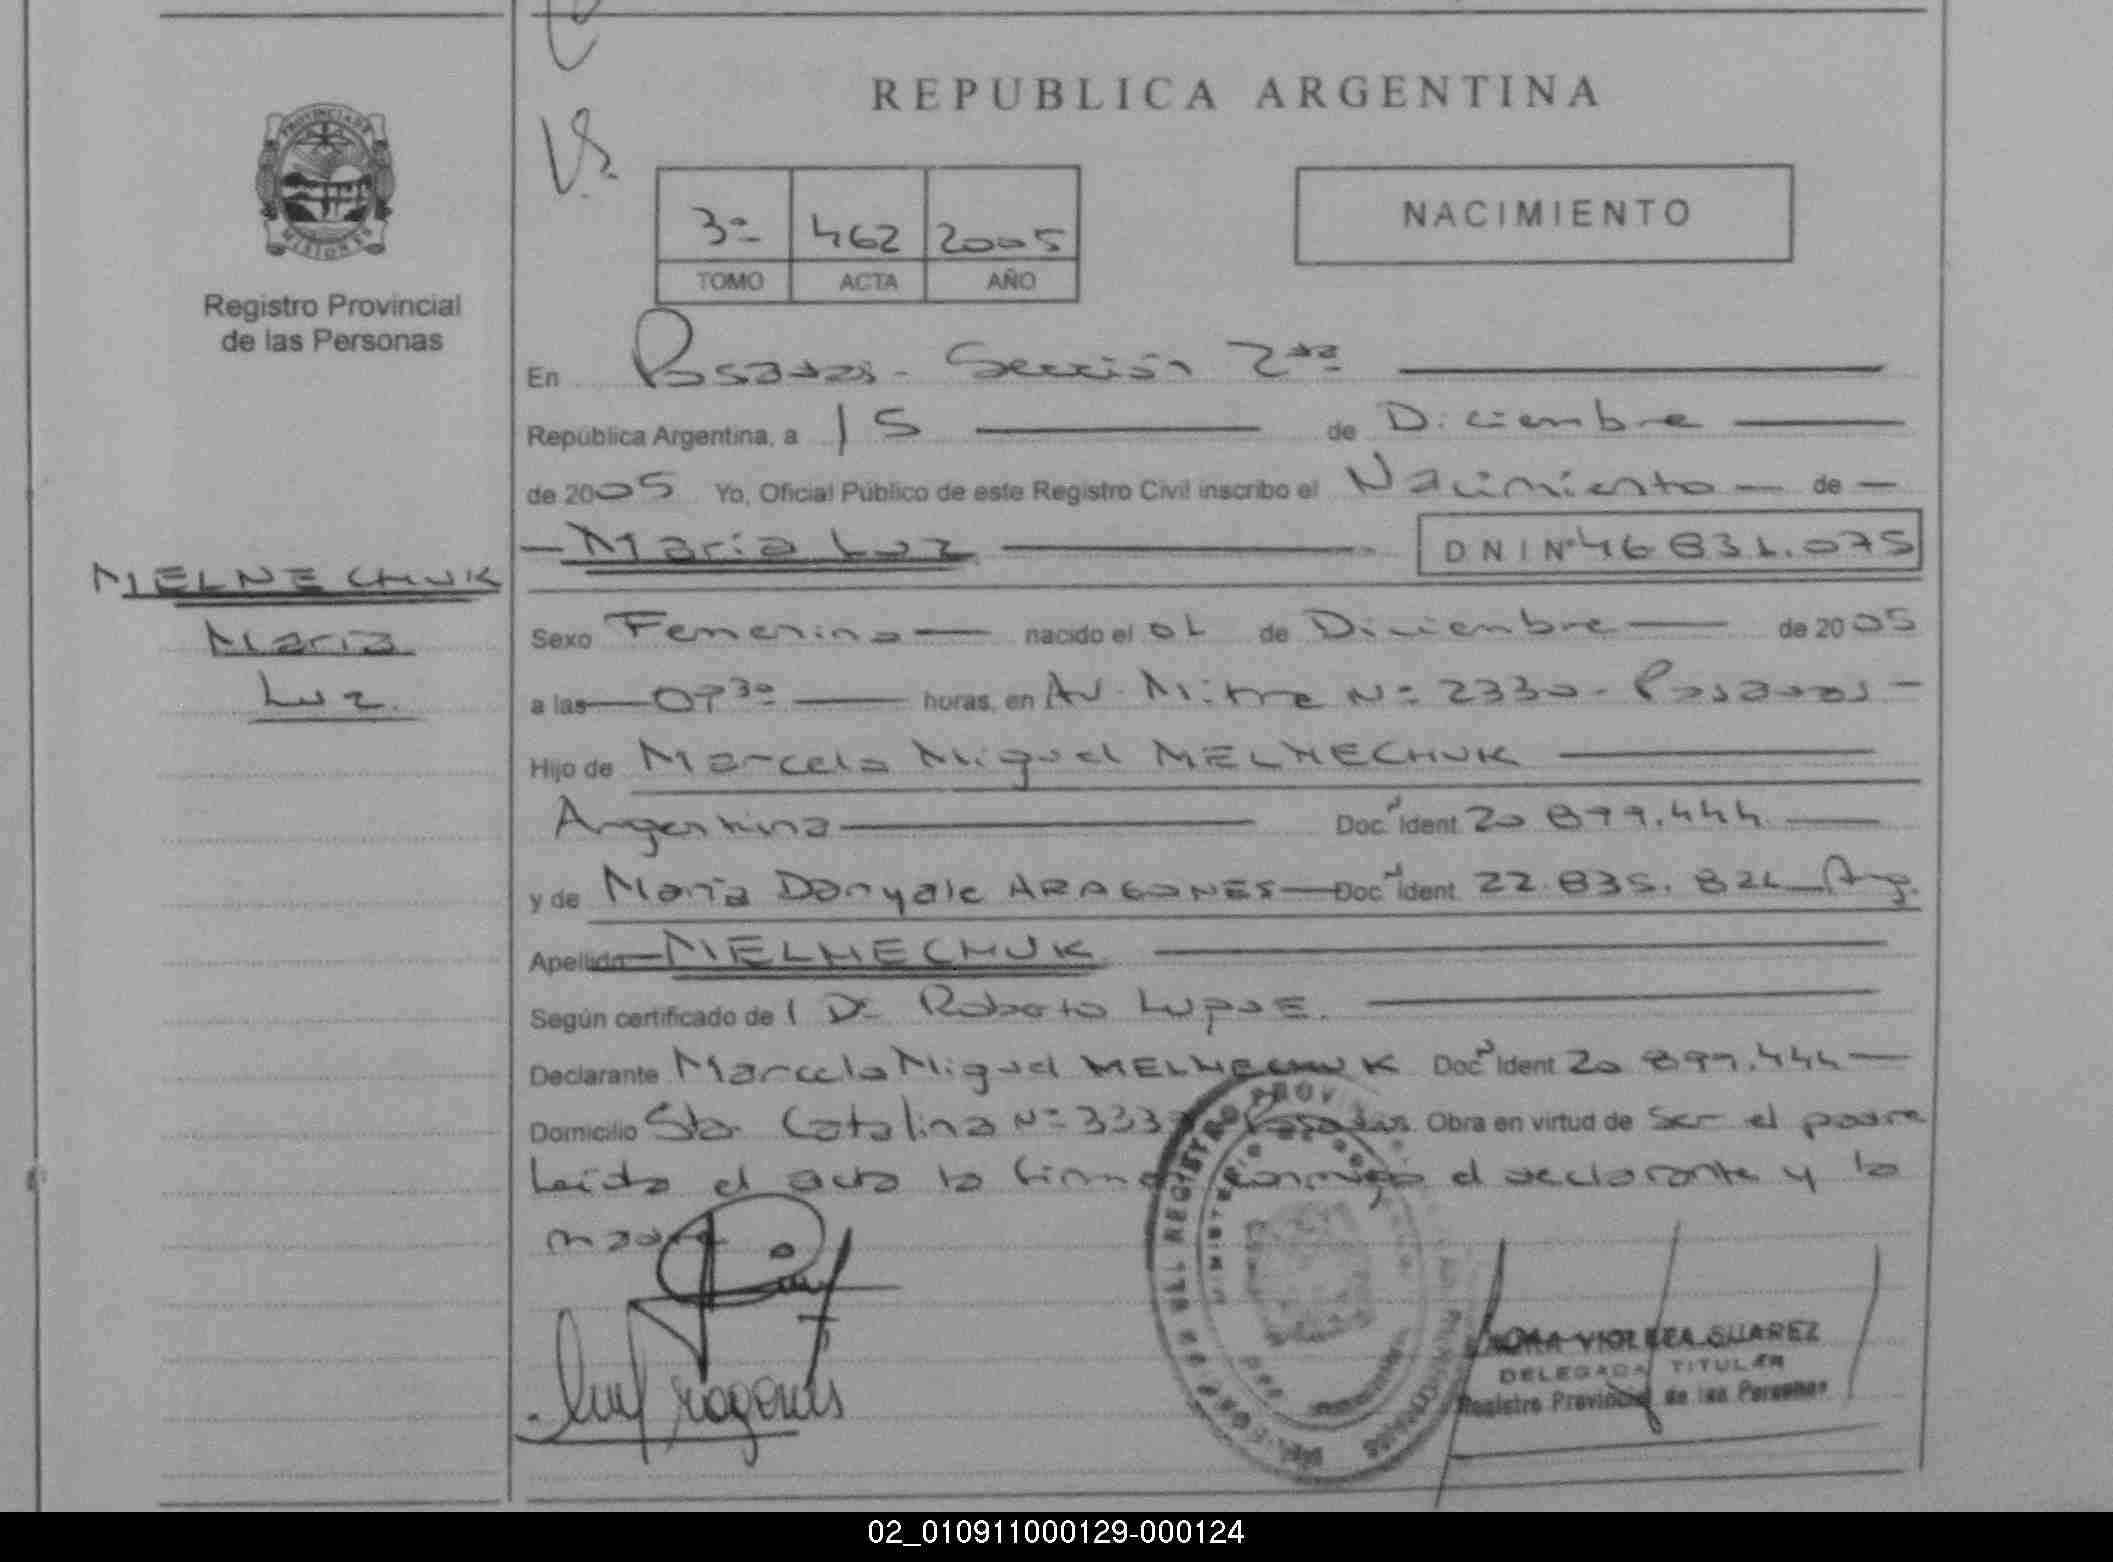 REPUBLICA ARGENTINA
Vs.
3º 462 2005
TOMO ACTA AÑO
NACIMIENTO
PROVINCIA DE MISIONES
Registro Provincial
de las Personas
En Posadas - Sección 2da
República Argentina, a 15 de Diciembre
de 2005 Yo, Oficial Público de este Registro Civil inscribo el Nacimiento de
María Luz DNI Nº 46 831.075
MELNECHUK
María
Luz
Sexo Femenino nacido el 01 de Diciembre de 2005
a las 07 30 horas, en Av. Mitre Nº 2330 - Posadas
Hijo de Marcelo Miguel MELNECHUK
Argentina Doc. Ident 20 899.444
y de María Danyale ARAGONES Doc. Ident. 22.835.821 Arg.
Apellido MELNECHUK
Según certificado de l Dr Roberto Lupoe.
Declarante Marcelo Miguel MELNECHUK Doc. Ident 20 899.444
Domicilio Sta. Catalina Nº 3333 Posadas Obra en virtud de ser el padre
Leída el acta la firma conmigo el declarante y la
madre
VIOLETA SUAREZ
DELEGADA TITULAR
Registro Provincial de las Personas
02_010911000129-000124